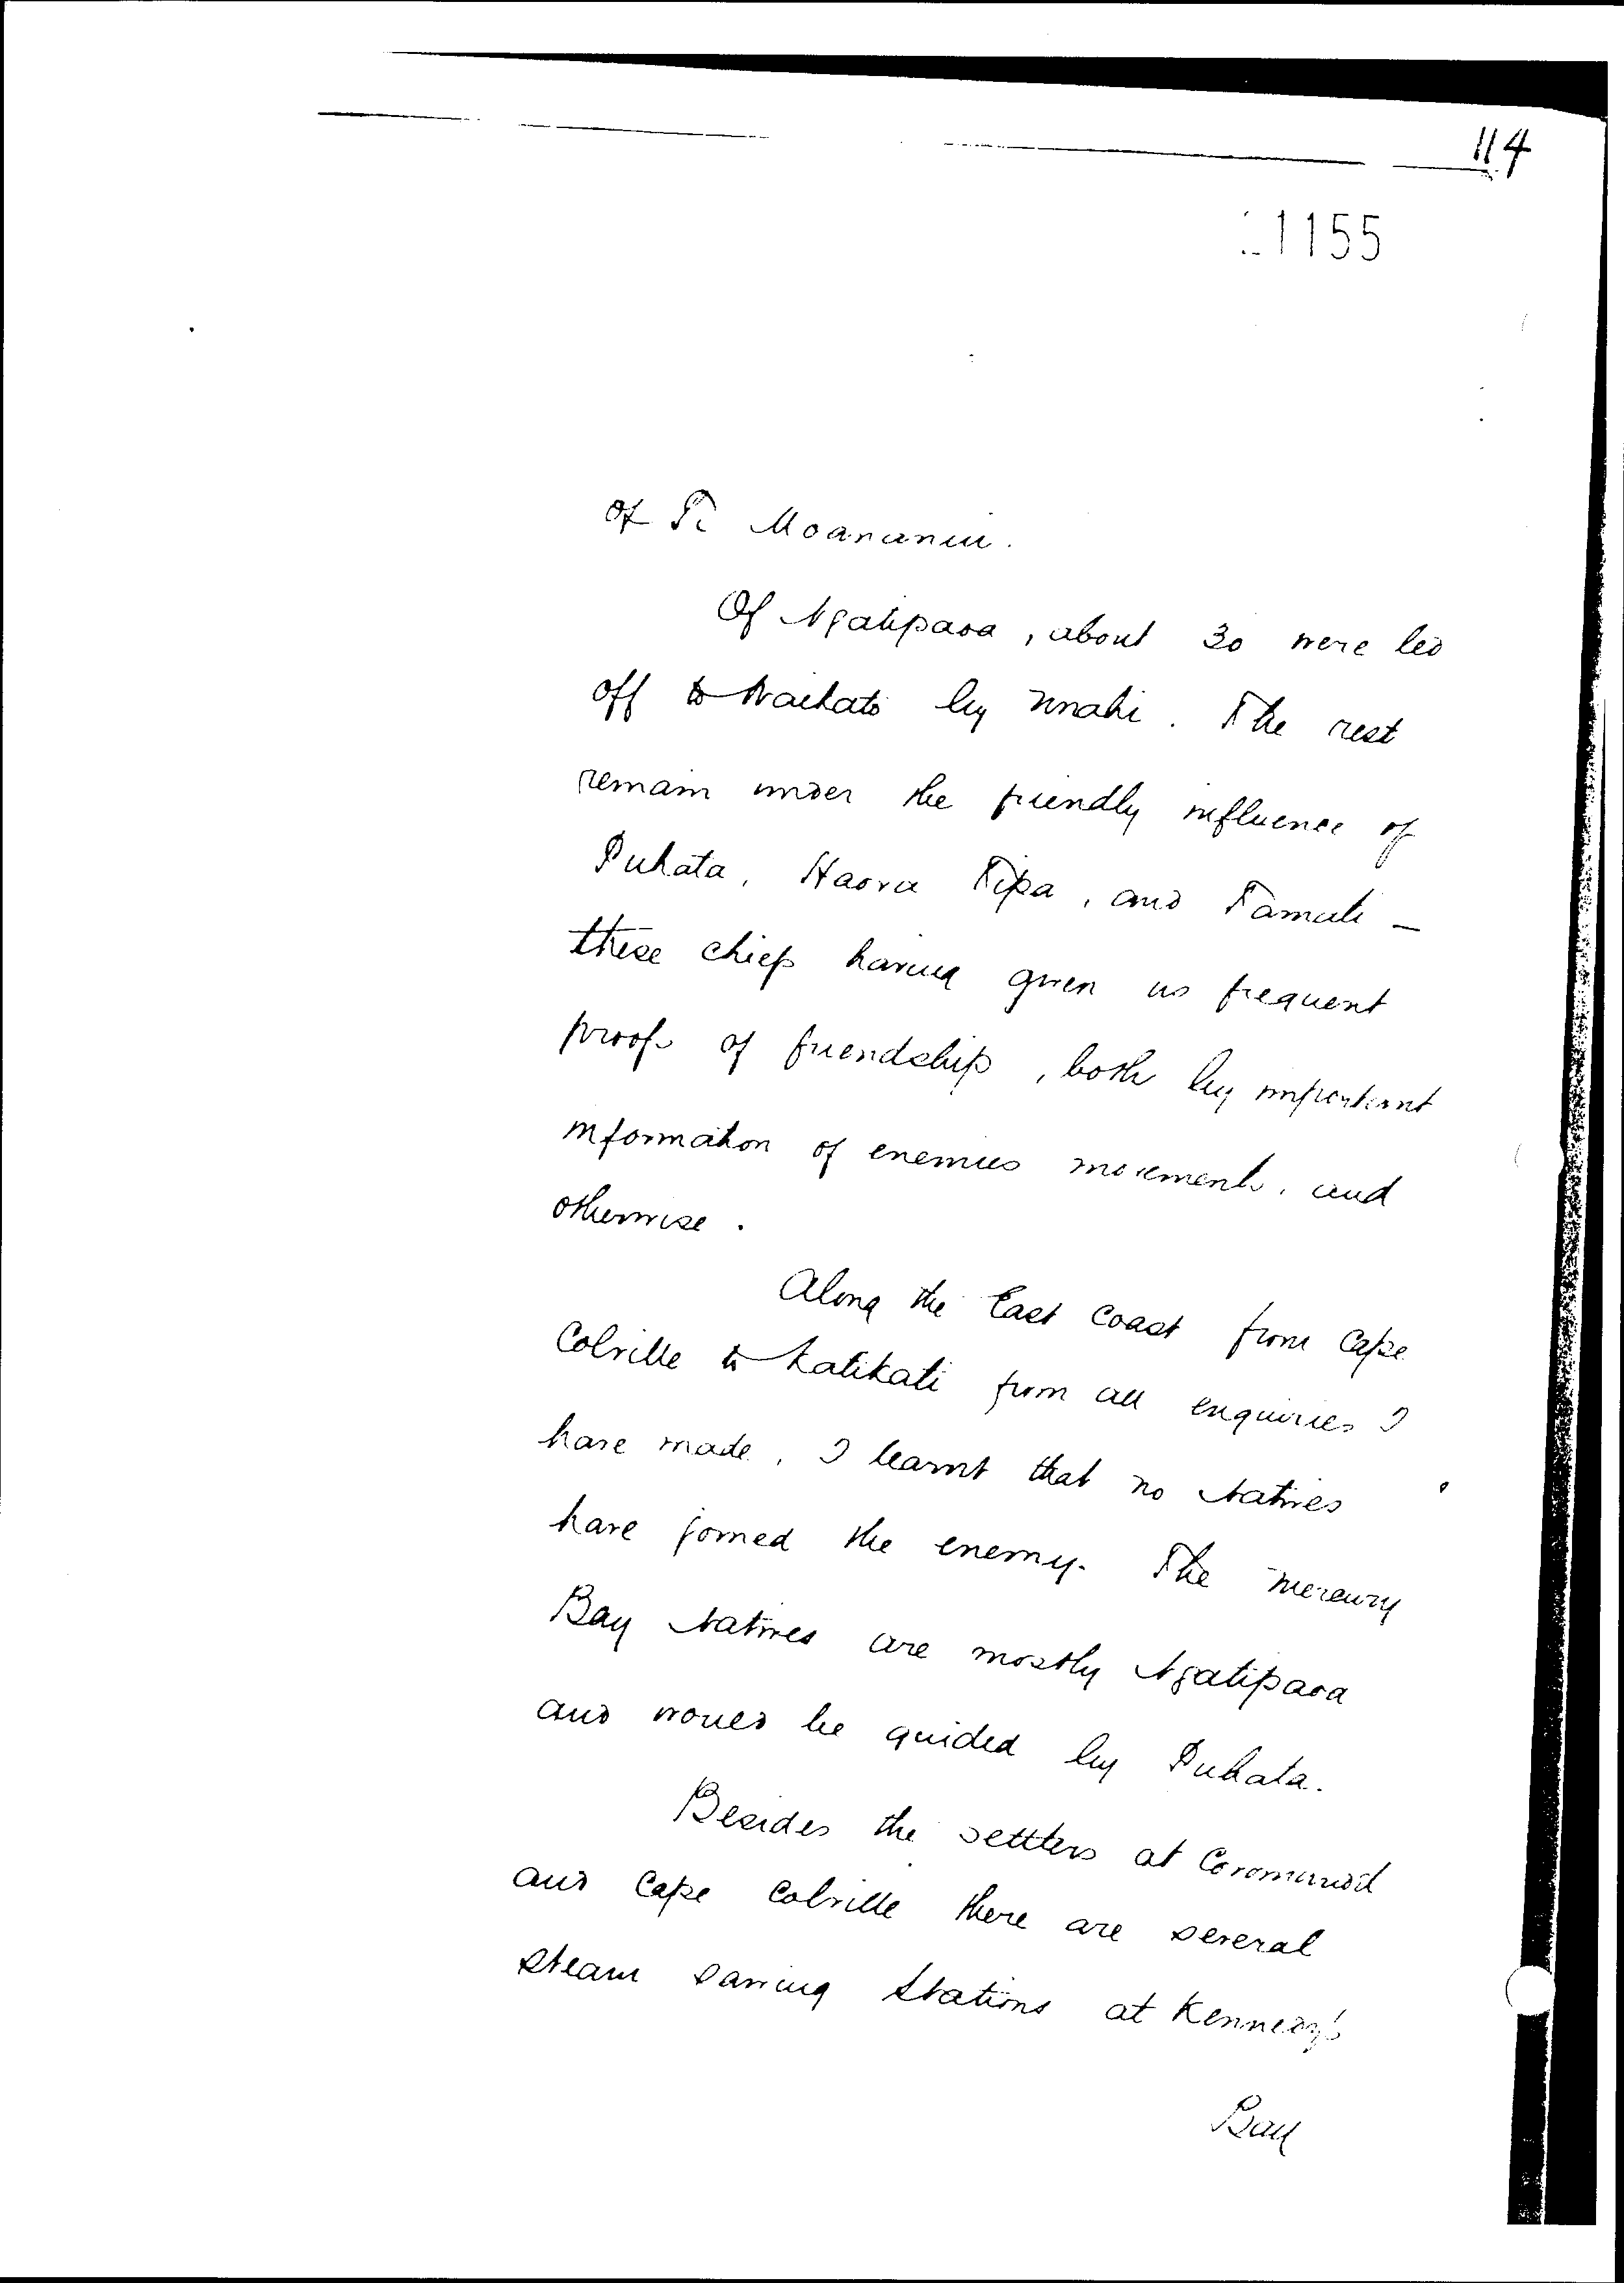 114
1155
of Te Moananui.
Of Ngatipaoa, about 30 were led
off to Waikato by Unahi. The rest
remain under the friendly influence of
Pukata, Haora Tipa, and Tamati -
these chiefs having given us frequent
proofs of friendship, both by important
information of enemies movements, and
otherwise.
Along the East Coast from Cape
Colville to Katikati from all enquiries I
have made, I learnt that no Natives
have joined the enemy. The Mercury
Bay Natives are mostly Ngatipaoa
and would be guided by Pukata.
Besides the settlers at Coromandel
and Cape Colville there are several
steam sawing stations at Kennedy's
Bay